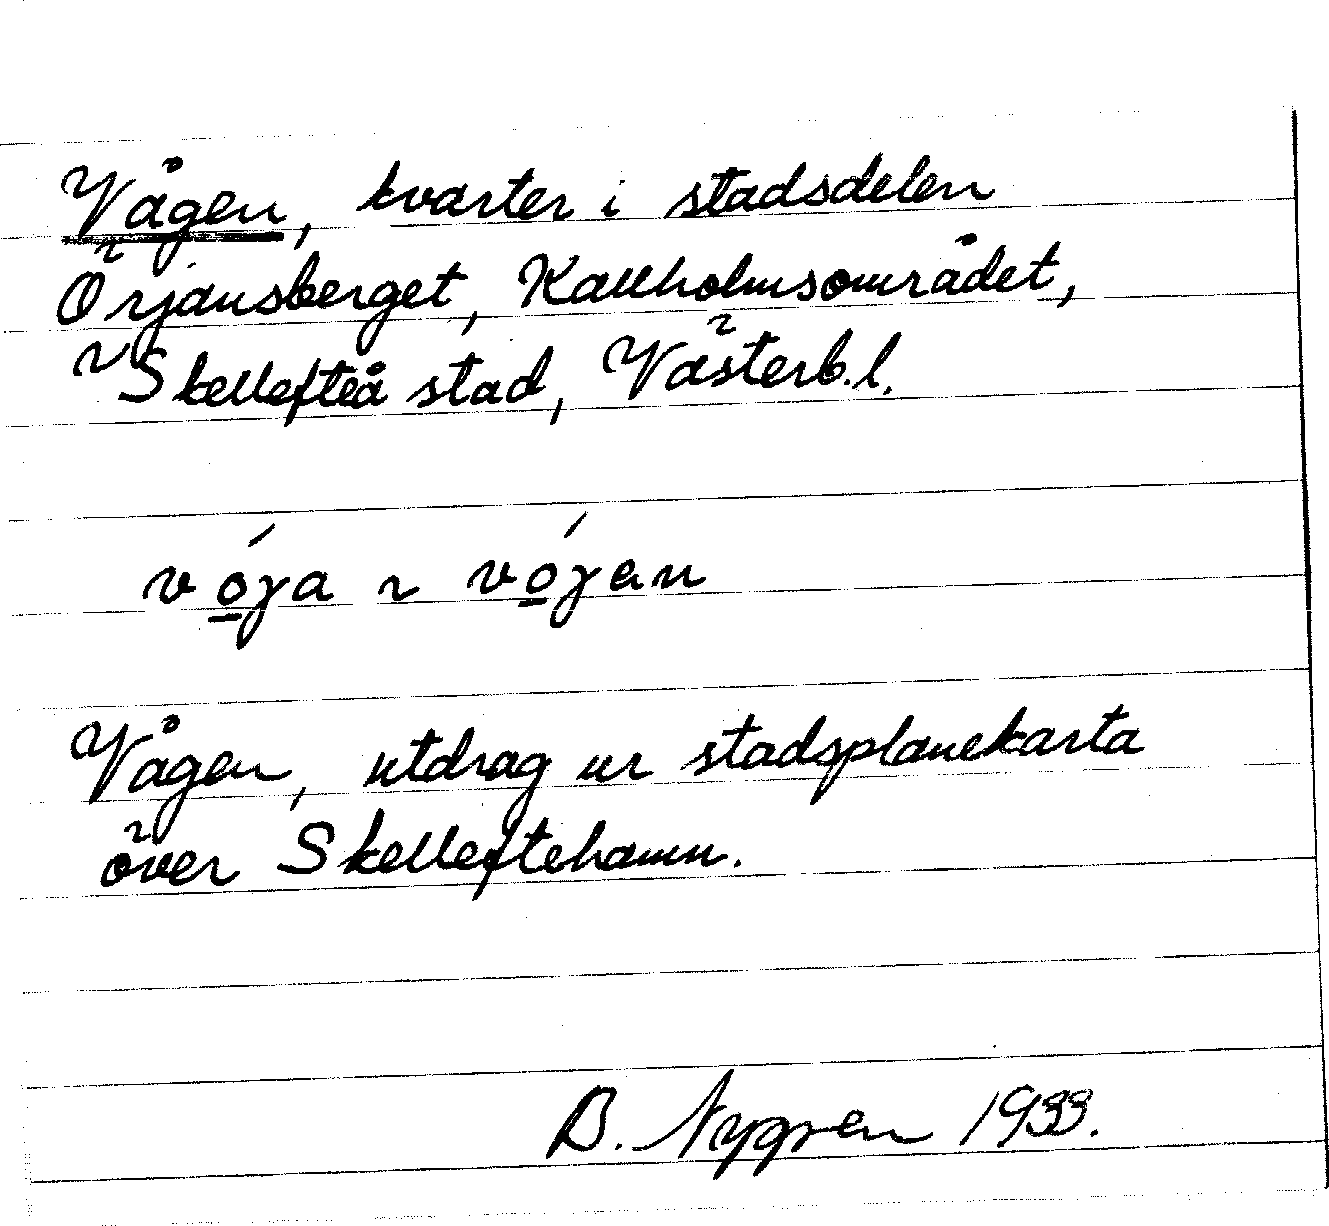 Vågen, kvarter i stadsdelen
Örjansberget, Kallholmsområdet,
~ Skellefteå stad, Västerb.l.
vó̲ga ~ vó̲gan
Vågen, utdrag ur stadsplanekarta
över Skelleftehamn.
B. Nygren 1933.